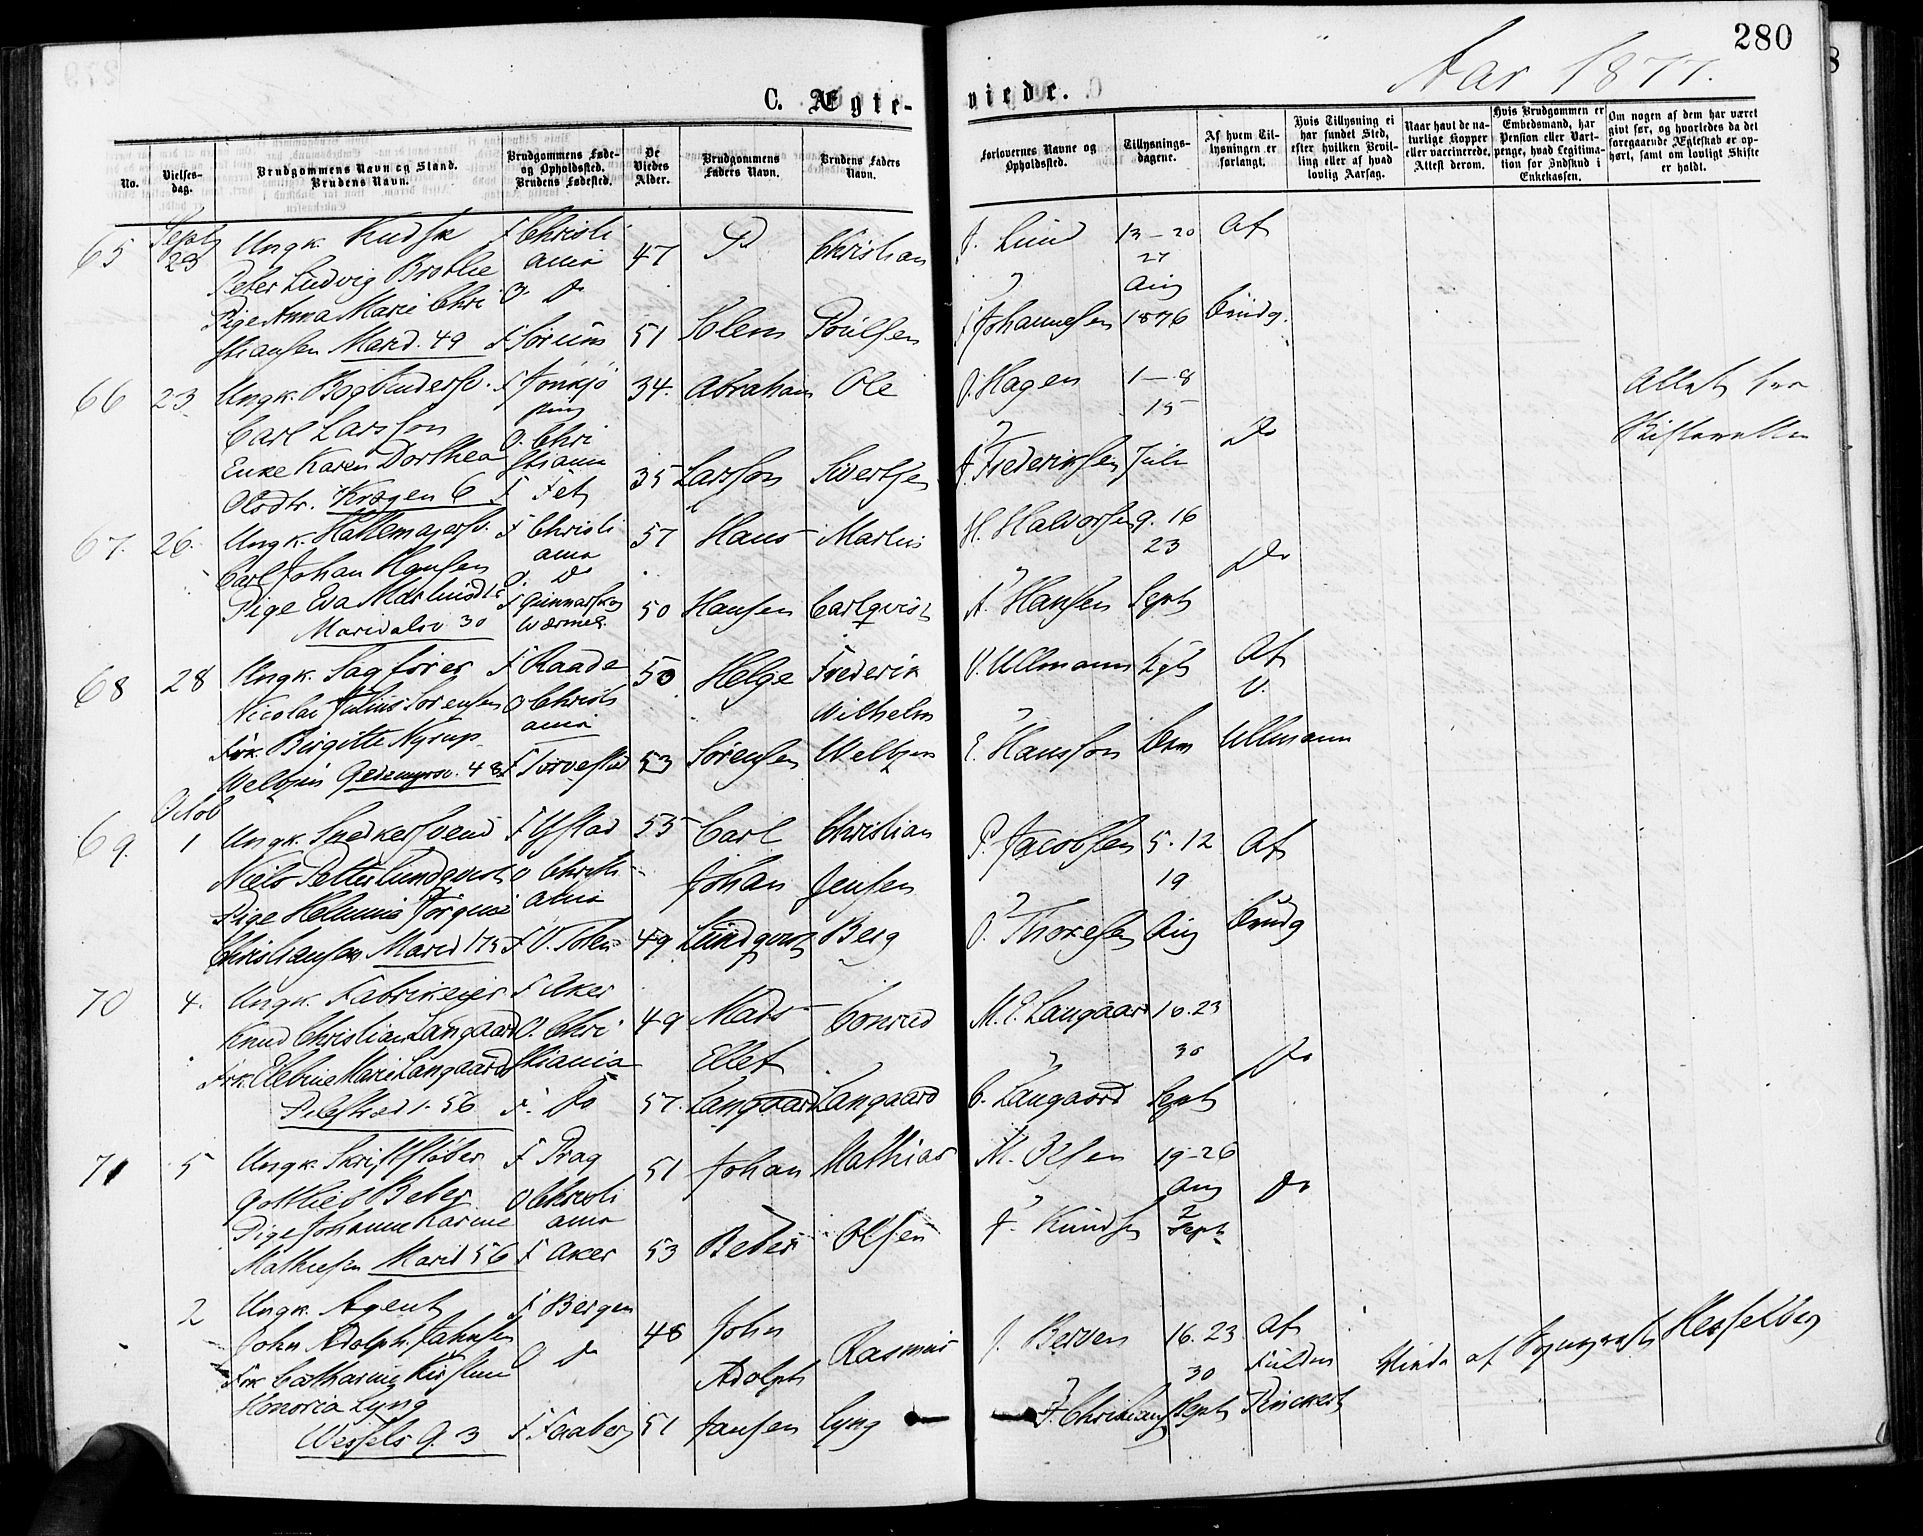 280
Aar 1877.
C. Ægte-
viede.
No.
Vielses-
dag.
Brudgommens Navn og Stand.
Brudens Navn.
Brudgommens Føde-
og Opholdssted.
Brudens Fødested.
De
Viedes
Alder.
Brudgommens
Faders Navn.
Brudens Faders
Navn.
Forlovernes Navne og
Opholdssted.
Tillysnings-
dagene.
Af hvem Til-
lysningen er
forlangt.
Hvis Tillysning ei
har fundet Sted,
efter hvilken Bevil-
ling eller af hvad
lovlig Aarsag.
Naar havt de na-
turlige Kopper
eller vaccinerede.
Attest derom.
Hvis Brudgommen er
Embedsmand, har
Pension eller Vart-
penge, hvad Legitima-
tion for Indskud i
Enkekassen.
Om nogen af dem har været
givt før, og hvorledes da det
foregaaende Ægteskab er op-
hørt, samt om lovligt Skifte
er holdt.
65 Septb 23 Ungk. Kudsk F Christi 47 P Christian J. Lund 13-20 Af
Peter Ludvig ania 27
Pige Anna Marie Chri O. Do Aug
stiansen Marid. 49 F Sørum 51 Solem Poulsen Johannesen 1876 Brudg.
66 23 Ungk. Bogbindersv. F Jönkjö 34. Abraham Ole O. Hagen 1-8 Attest fra
Carl Larsson ping 15 Skifteretten
Enke Karen Dorthea O. Chri Do
Olsdtr. Krogen 6 stiania F Fet 35 Larsson Sivertsen Frederiksen Juli
67. 26. Ungk. F Christi 57 Hans Martin H. Halvorsen 9. 16
Carl Johan Hansen ania 23
Pige Eva O. Do Do
Maridalsv 30 F Gunnarskog Wærmel. 50 Hansen Carlqvist A. Hansen Sept
68 28 Ungk. Sagfører F Raade 50 Helge Frederik V. Ullmann Lyst Af
Nicolai Julius Sørensen O Christi Wilhelm V.
Frk. Birgitte Nyrup ania
Welbjen 48 F Torvestad 53 Sørensen Welbjen E. Hansson Ullmann
69. Octob 1 Ungk. Snedkersvend F Ystad 55 Carl Christian P. Jacobsen 5. 12 Af
Niels Petter Lundqvist O Christi Johan Jensen 19
Pige Helmine Jørgine ania
Christiansen Marid 175 F V. Toten 49 Lundqvist Berg O. Thoresen Aug Brudg
70 4. Ungk. Fabrikeier F Aker 49 Mads Conrad M. E. Langaard 16. 23
Knud Christian Langaard O. Chri Ellef 30 Do
Frk. Marie Langaard stiania
Pilestræd. 56 F. Do 57. Langaard Langaard C. Langaard Sept
71 5 Ungk. Skriftstøber F Prag 51 Johan Mathias M. Olsen 19-26
Gottlieb Beber O Christi Aug Do
Pige Johanne Karine ania 2
Mathiesen Marid 56 F Aker 53 Beber Olsen J. Knudsen Sept
2 Ungk. Agent F Bergen 48 John Rasmus J. Berven 16. 23 Af
John Adolph Jahnsen O Do Adolph 30 Viede af Sognepræst Hesselberg
Frk Catharina Kirstine
Honoria Lyng
Wessels G. 3 F. Faaberg 51 Jansen Lyng F. Christians Sept